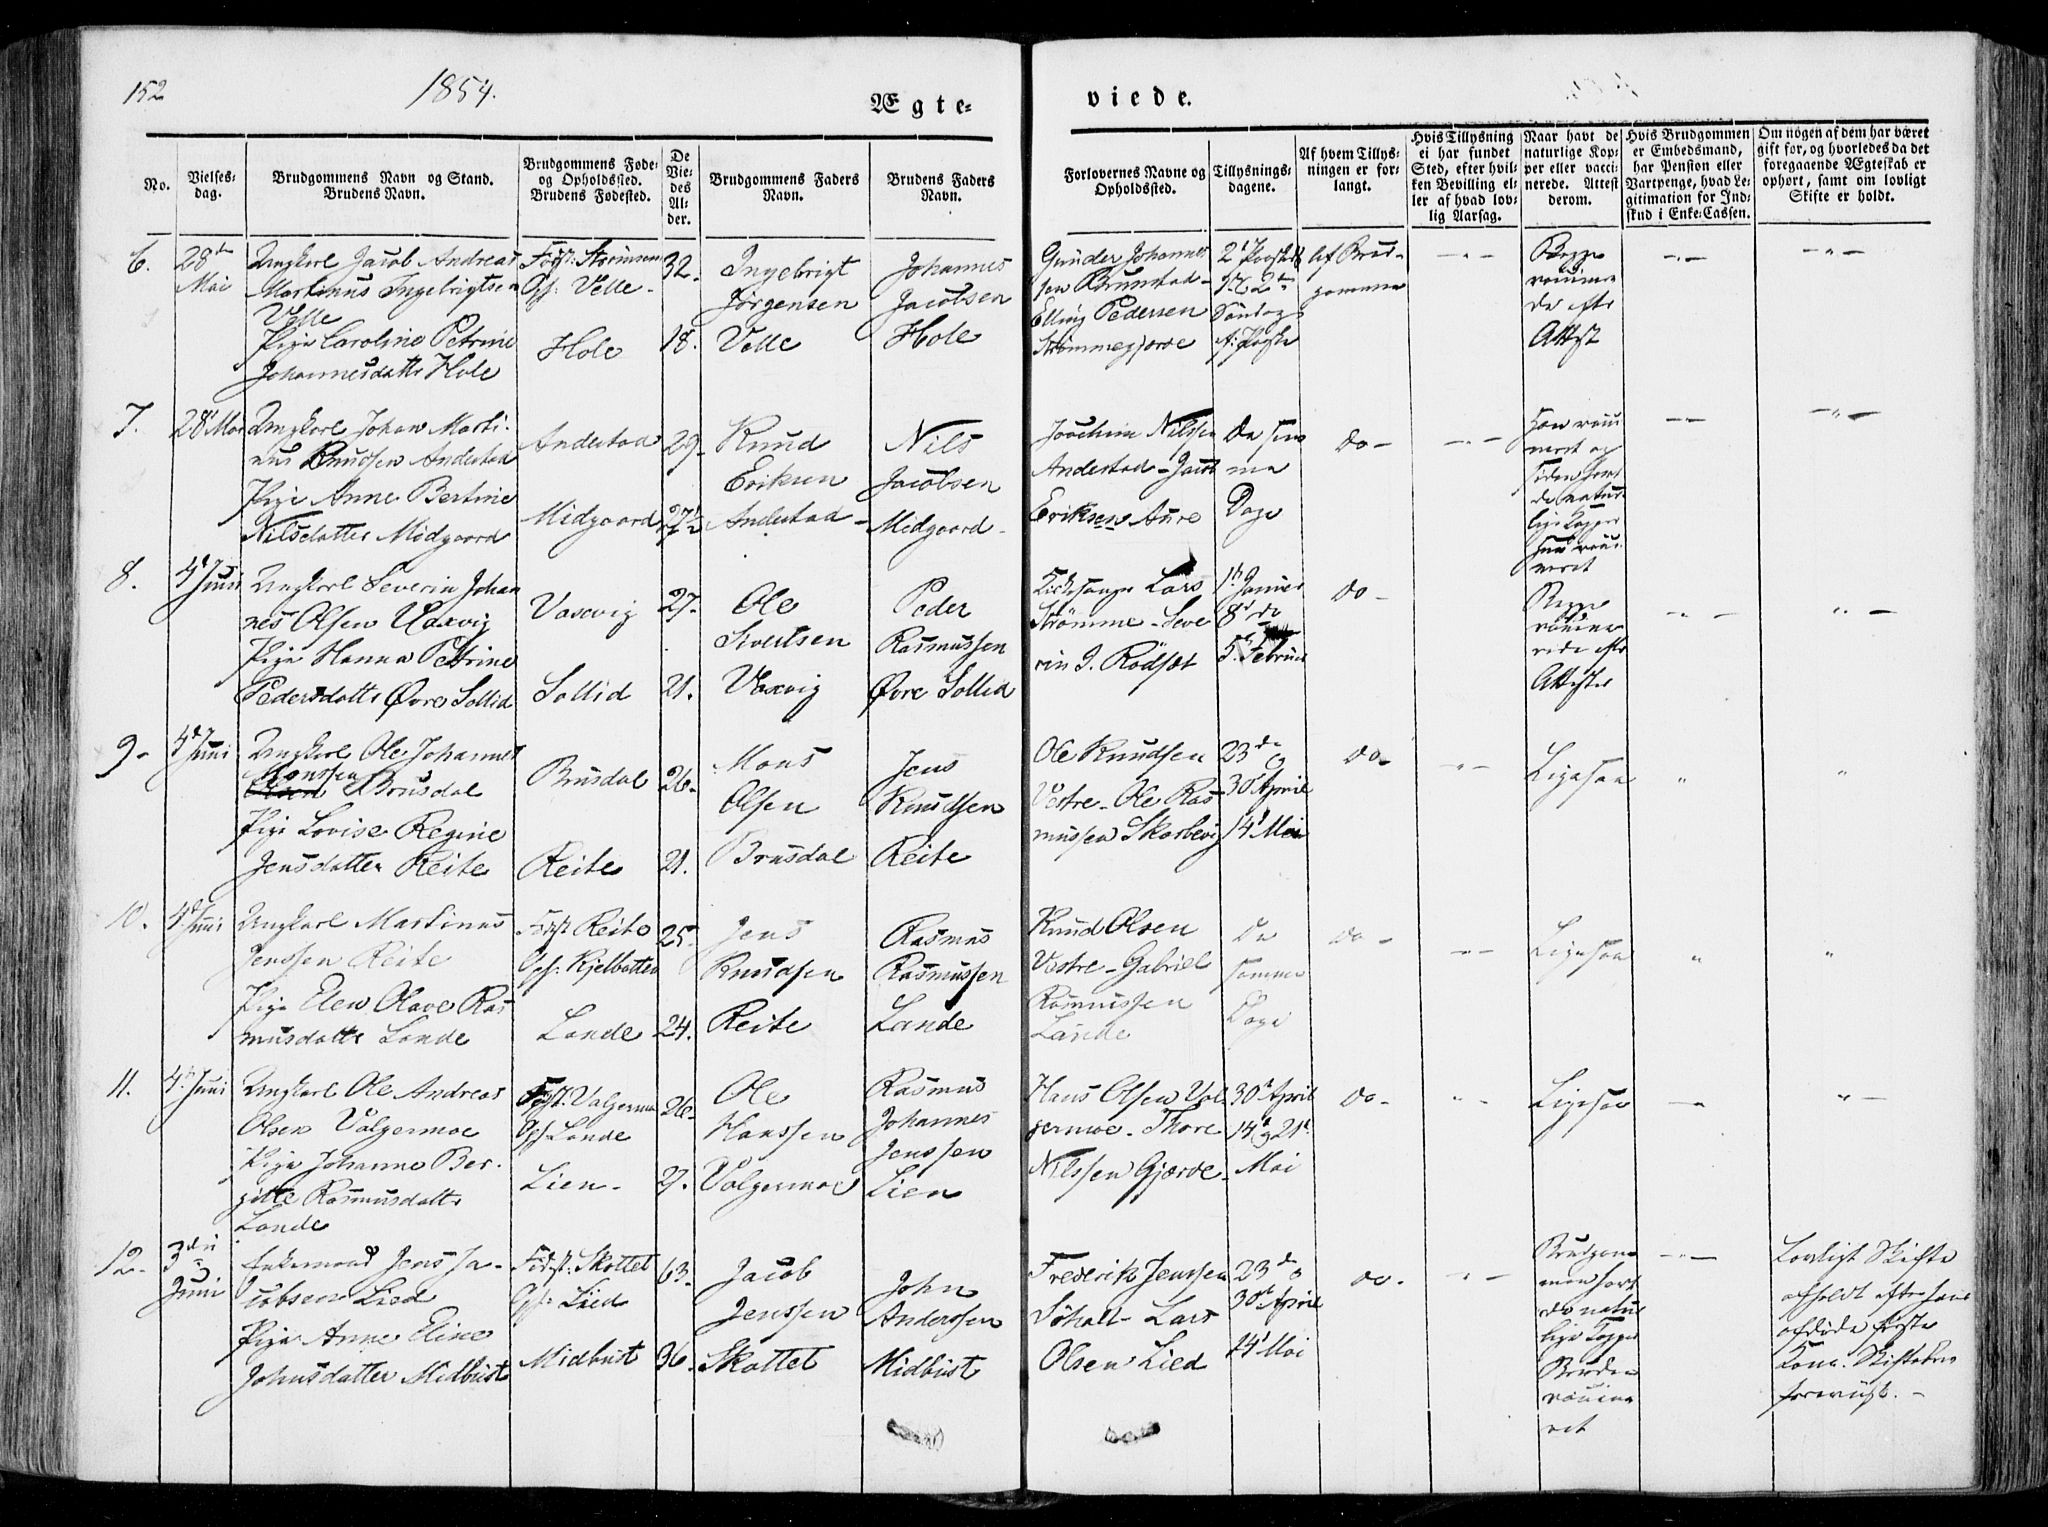 152
1854.
Ægte-
viede.
No.
Vielses-
dag.
Brudgommens Navn og Stand.
Brudens Navn.
Brudgommens Føde-
og Opholdssted.
Brudens Fødested.
De
Vie-
des
Al-
der.
Brudgommens Faders
Navn.
Brudens Faders
Navn.
Forlovernes Navne og
Opholdssted.
Tillysnings-
dagene.
Af hvem Tillys-
ningen er for-
langt.
Hvis Tillysning
ei har fundet
Sted, efter hvil-
ken Bevilling el-
ler af hvad lov-
lig Aarsag.
Naar havt de
naturlige Kop-
per eller vacci-
nerede. Attest
derom.
Hvis Brudgommen
er Embedsmand,
har Pension eller
Vartpenge, hvad Le-
gitimation for Ind-
skud i Enke-Cassen.
Om nogen af dem har været
gift før, og hvorledes da det
foregaaende Ægteskab er
ophørt, samt om lovligt
Skifte er holdt.
6.
28de
Mai
Ungkarl Jacob Andreas
Martinus Ingebrigtsen
Velle
Pige Caroline Petrine
Johannesdatter Hole
Oph: Velle
Hole
32.
18.
Ingebrigt
Jørgensen
Velle
Johannes
Jacobsen
Hole
Gunder Johannes
sen Brunstad
Elling Pedersen
Strømmegjerde
Søndag
Af Brud-
gommen
Begge
vaccinere
de efter
Attest
7.
28 Mai
Ungkarl Johan Marti-
nus Knudsen Andestad
Pige Anne Bertine
Nilsdatter Midgaard
Andestad
Midgaard
29
27½
Knud
Eriksen
Andestad
Nils
Jacobsen
Midgaard
Joachim Nilssen
Andestad - Jacob
Eriksen Aure
De sam
me
Dage
Do
Han vacci
neret og
siden havt
de natur
lige Kopper
hun vacci
neret
8.
4 Juni
Ungkarl Severin Johan
nes Olsen Vaxvig
Pige Hanna Petrine
Pedersdatter Øvre Sollid
Vaxvig
Sollid
27.
21.
Ole
Sivertsen
Vaxvig
Peder
Rasmussen
Øvre Sollid
Kirkesanger Lars
Strømme - Seve
rin J. Rødset
1ste Januar
8de do
5te Februar
Do
Begge
vaccine
rede efter
Attester
9
4de Juni
Ungkarl Ole Johannes
Monssen
Brusdal
Pige Lovise Regine
Jensdatter Reite
Brusdal
Reite
26
21.
Mons
Olsen
Brusdal
Jens
Knudsen
Reite
Ole Knudsen
Vestre - Ole Ras
mussen Skorbevig
23de og
30 April
14 Mai
Do
Ligesaa
10.
4de Juni
Ungkarl Martinus
Jenssen Reite
Pige Elen Olave Ras
musdatter Lande
Fødst Reite
Oph: Kjelbotten
Lande
25
24.
Jens
Knudsen
Reite
Rasmus
Rasmussen
Lande
Knud Olsen
Vestre - Gabriel
Rasmussen
Lande
De
samme
Dage
Do
Ligesaa
11.
4de Juni
Ungkarl Ole Andreas
Olsen Valgermoe
Pige Johanne Ber-
gitte Rasmusdatter
Lande
Fødst: Valgermoe
Oph Lande
Lien
26
Ole
Hanssen
Valgermoe
Rasmus
Johannes
Jenssen
Lien
Hans Olsen Val-
germoe - Thore
Nilssen Gjerde
30 April
14 og 21
Mai
Do
Ligesaa
12.
3die
Juni
Enkemand Jens Ja-
cobsen Lied
Pige Anne Eline
Johnsdatter Midbust
Fødst: Skottet
Oph: Lied
Midbust
63
36
Jacob
Jenssen
Skottet
John
Anderssen
Midbust
Frederik Jenssen
Søholt - Lars
Olsen Lied
23de og
30te April
14 Mai
Do
Brudgom
men havt
de natur
lige Kopper
Bruden
vaccine
ret
Lovligt Skifte
afholdt efter hans
afdøde første
Kone. Skiftebrev
foreviist.